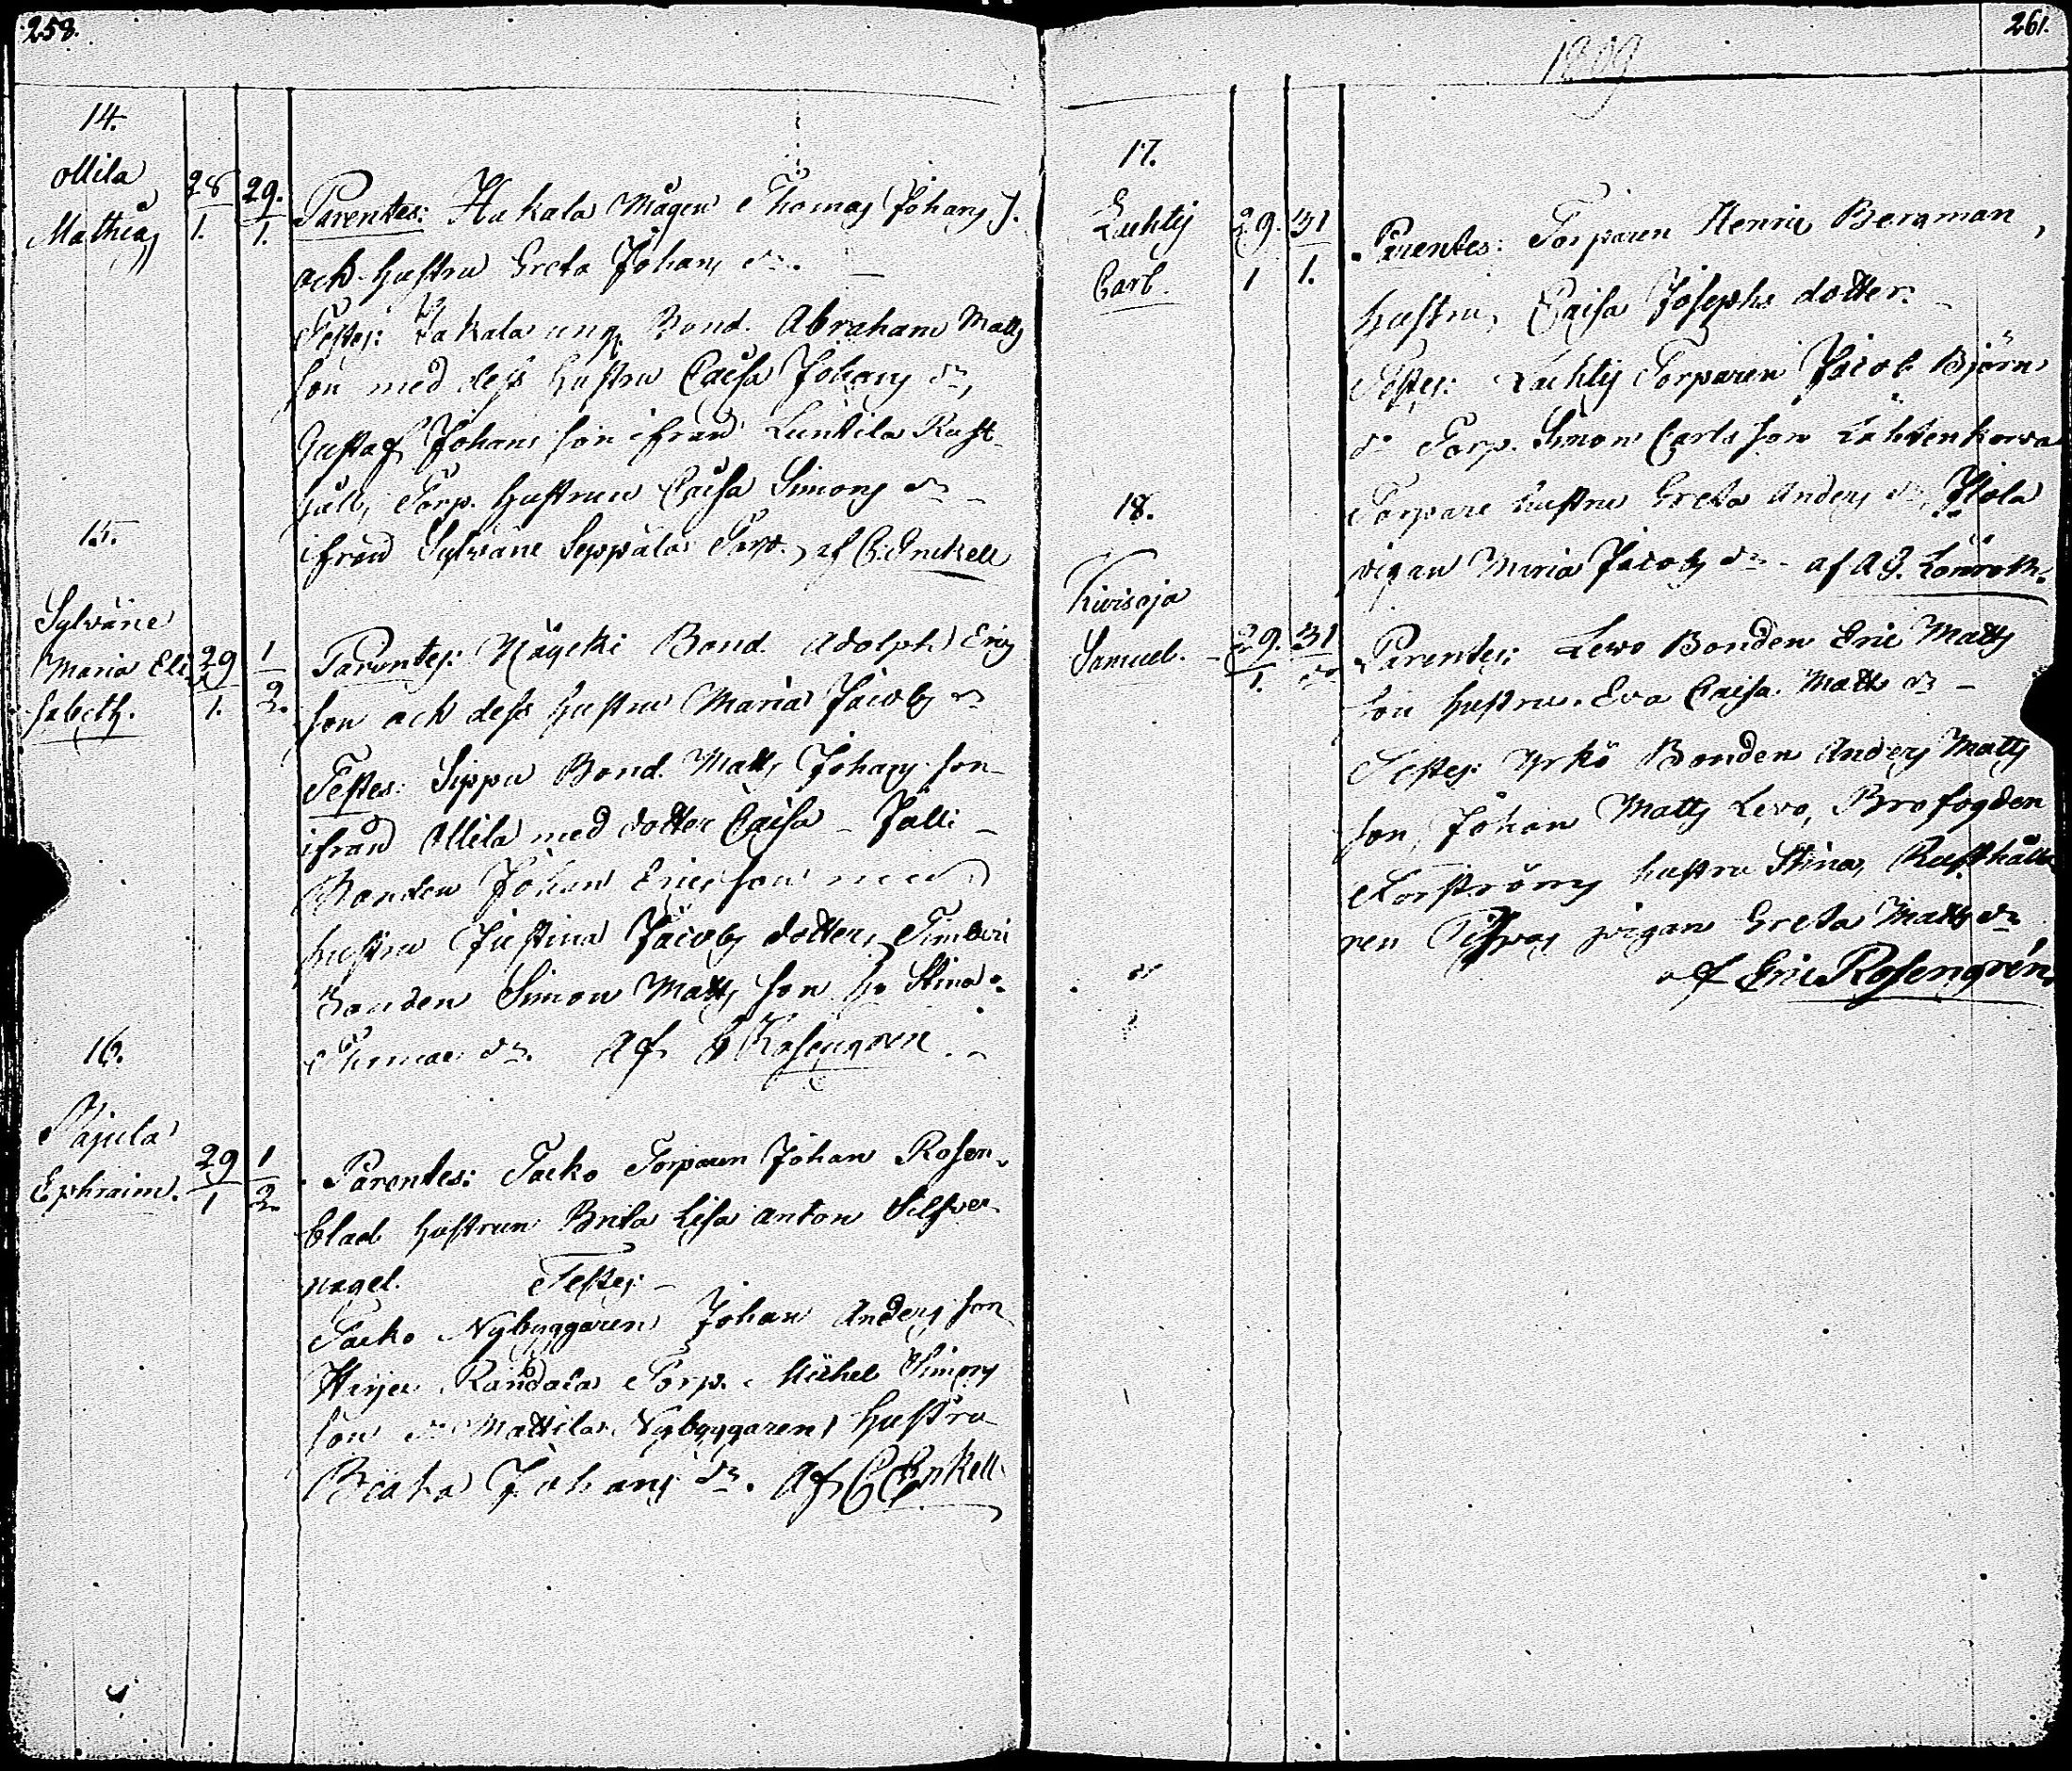 258.
14.
Ollila
Mathias
28/1. 29./1.
Parentes: Hakala Mågen Thomas Johans S.
och hustru Greta Johans dr.
Testes: Hakala ung Bond. Abraham Matts
son med dess hustru Caisa Johans dr,
Gustaf Johans son ifrån Luntila Rust
håll, Torp. hustrun Caisa Simons dr
ifrån Sylväne Seppälä Torp. af C. Enckell
15.
Sylväne
Maria Eli
sabeth.
29/1. 1/2.
Parentes: Näycki Bond. Adolph Erics
son och dess hustru Maria Jacobs dr
Testes: Sippu Bond. Matts Johans son
ifrån Ollila med dotter Caisa - Jälli -
Bonden Johan Erics son med
hustru Justina Jacobs dotter, Timberi
Bonden Simon Matts son ho Stina
Thomae dr. Af Rosengren
16.
Pajula
Ephraim.
29/1 1/2.
Parentes: Tacko Torparen Johan Rosen
blad hustrun Brita Lisa Anton Silfver
nagel. Testes:
Tacko Nybyggaren Johan Anders son
Heijen Randala Torp. Michel Simons
son dr Mattila Nybyggaren hustru
Beata Johans dr. Af C Enckell
261.
1809
17.
Luchtij
Carl.
29./1 31/1.
Parentes: Torparen Henric Bergman,
hustru, Caisa Josephs dotter.
Testes: Luchtij Torparen Jacob Björn
do Torp. Simon Carls son Lähtenkorva
Torpare hustru Greta Anders dr, Jlola
pigan Maria Jacobs dr - af A G. Lönroth.
18.
Kivisoja
Samuel.
29./1. 31/do
Parentes: Levo Bonden Eric Matts
son hustru Eva Caisa Matts dr -
Testes: Yrkö Bonden Anders Matts
son, Johan Matts Levo, Brofogden
Forströms hustru Stina, Rusthålla
ren pigan Greta Matts dr
af Eric Rosengrén.